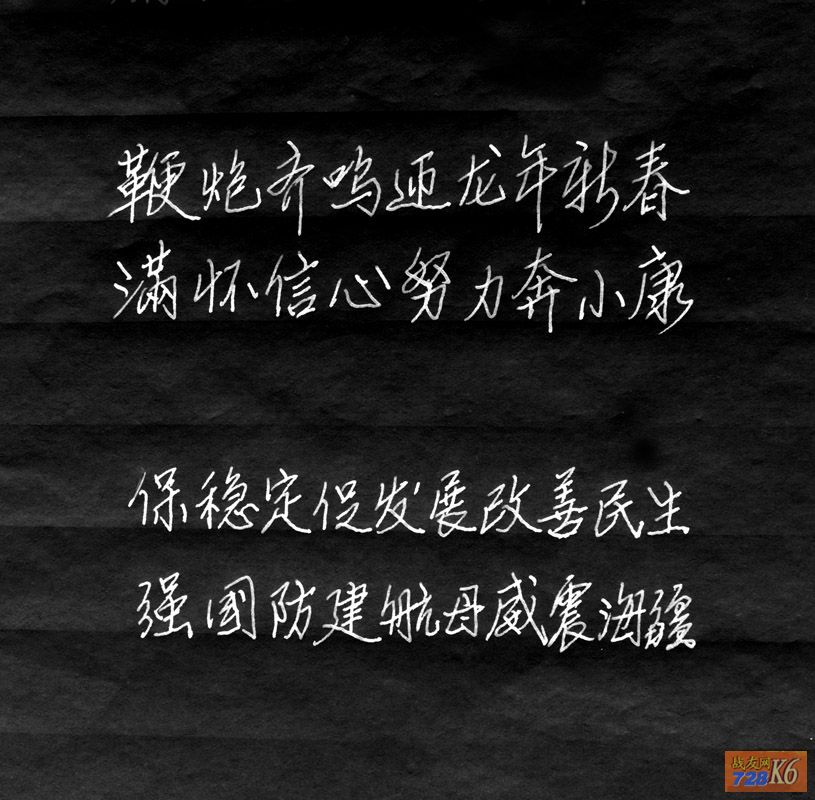 鞭炮齐鸣迎龙年新春
滿怀信心努力奔小康
保稳定促发展改善民生
强國防建航母威震海疆
战友网
728 K6